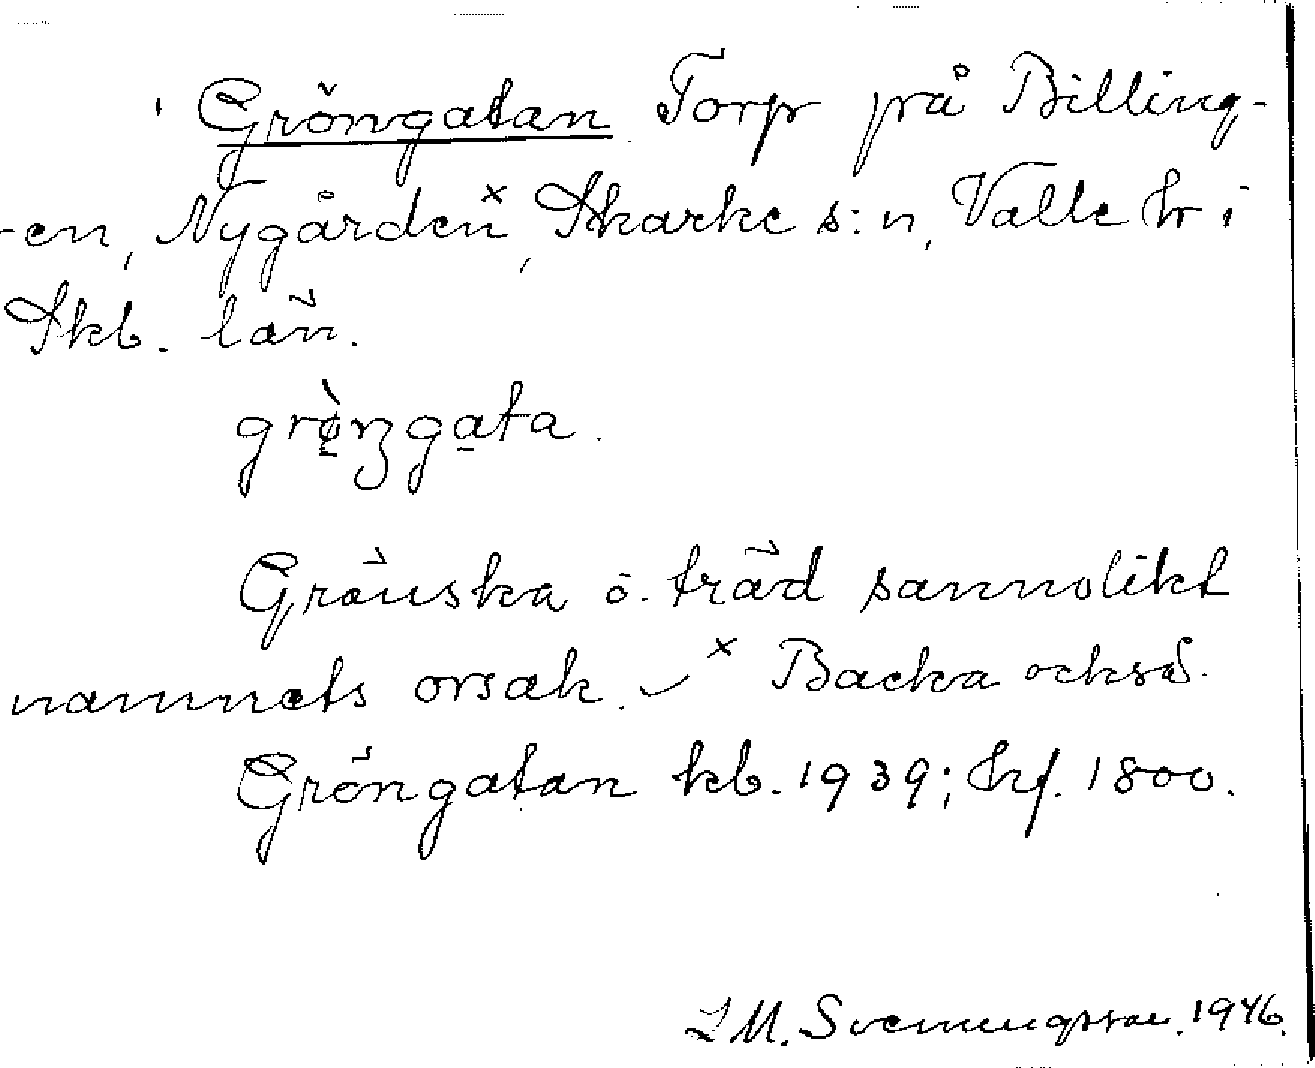 Gröngatan Torp på Billing-
en, Nygården x, Skarke s:n, Valle hr i
Skb. län.
grø̀ngata.
Grönska o. träd sannolikt
namnets orsak. – x Backa också.
Gröngatan kb. 1939; hf. 1800.
I M. Svenungsson. 1946.